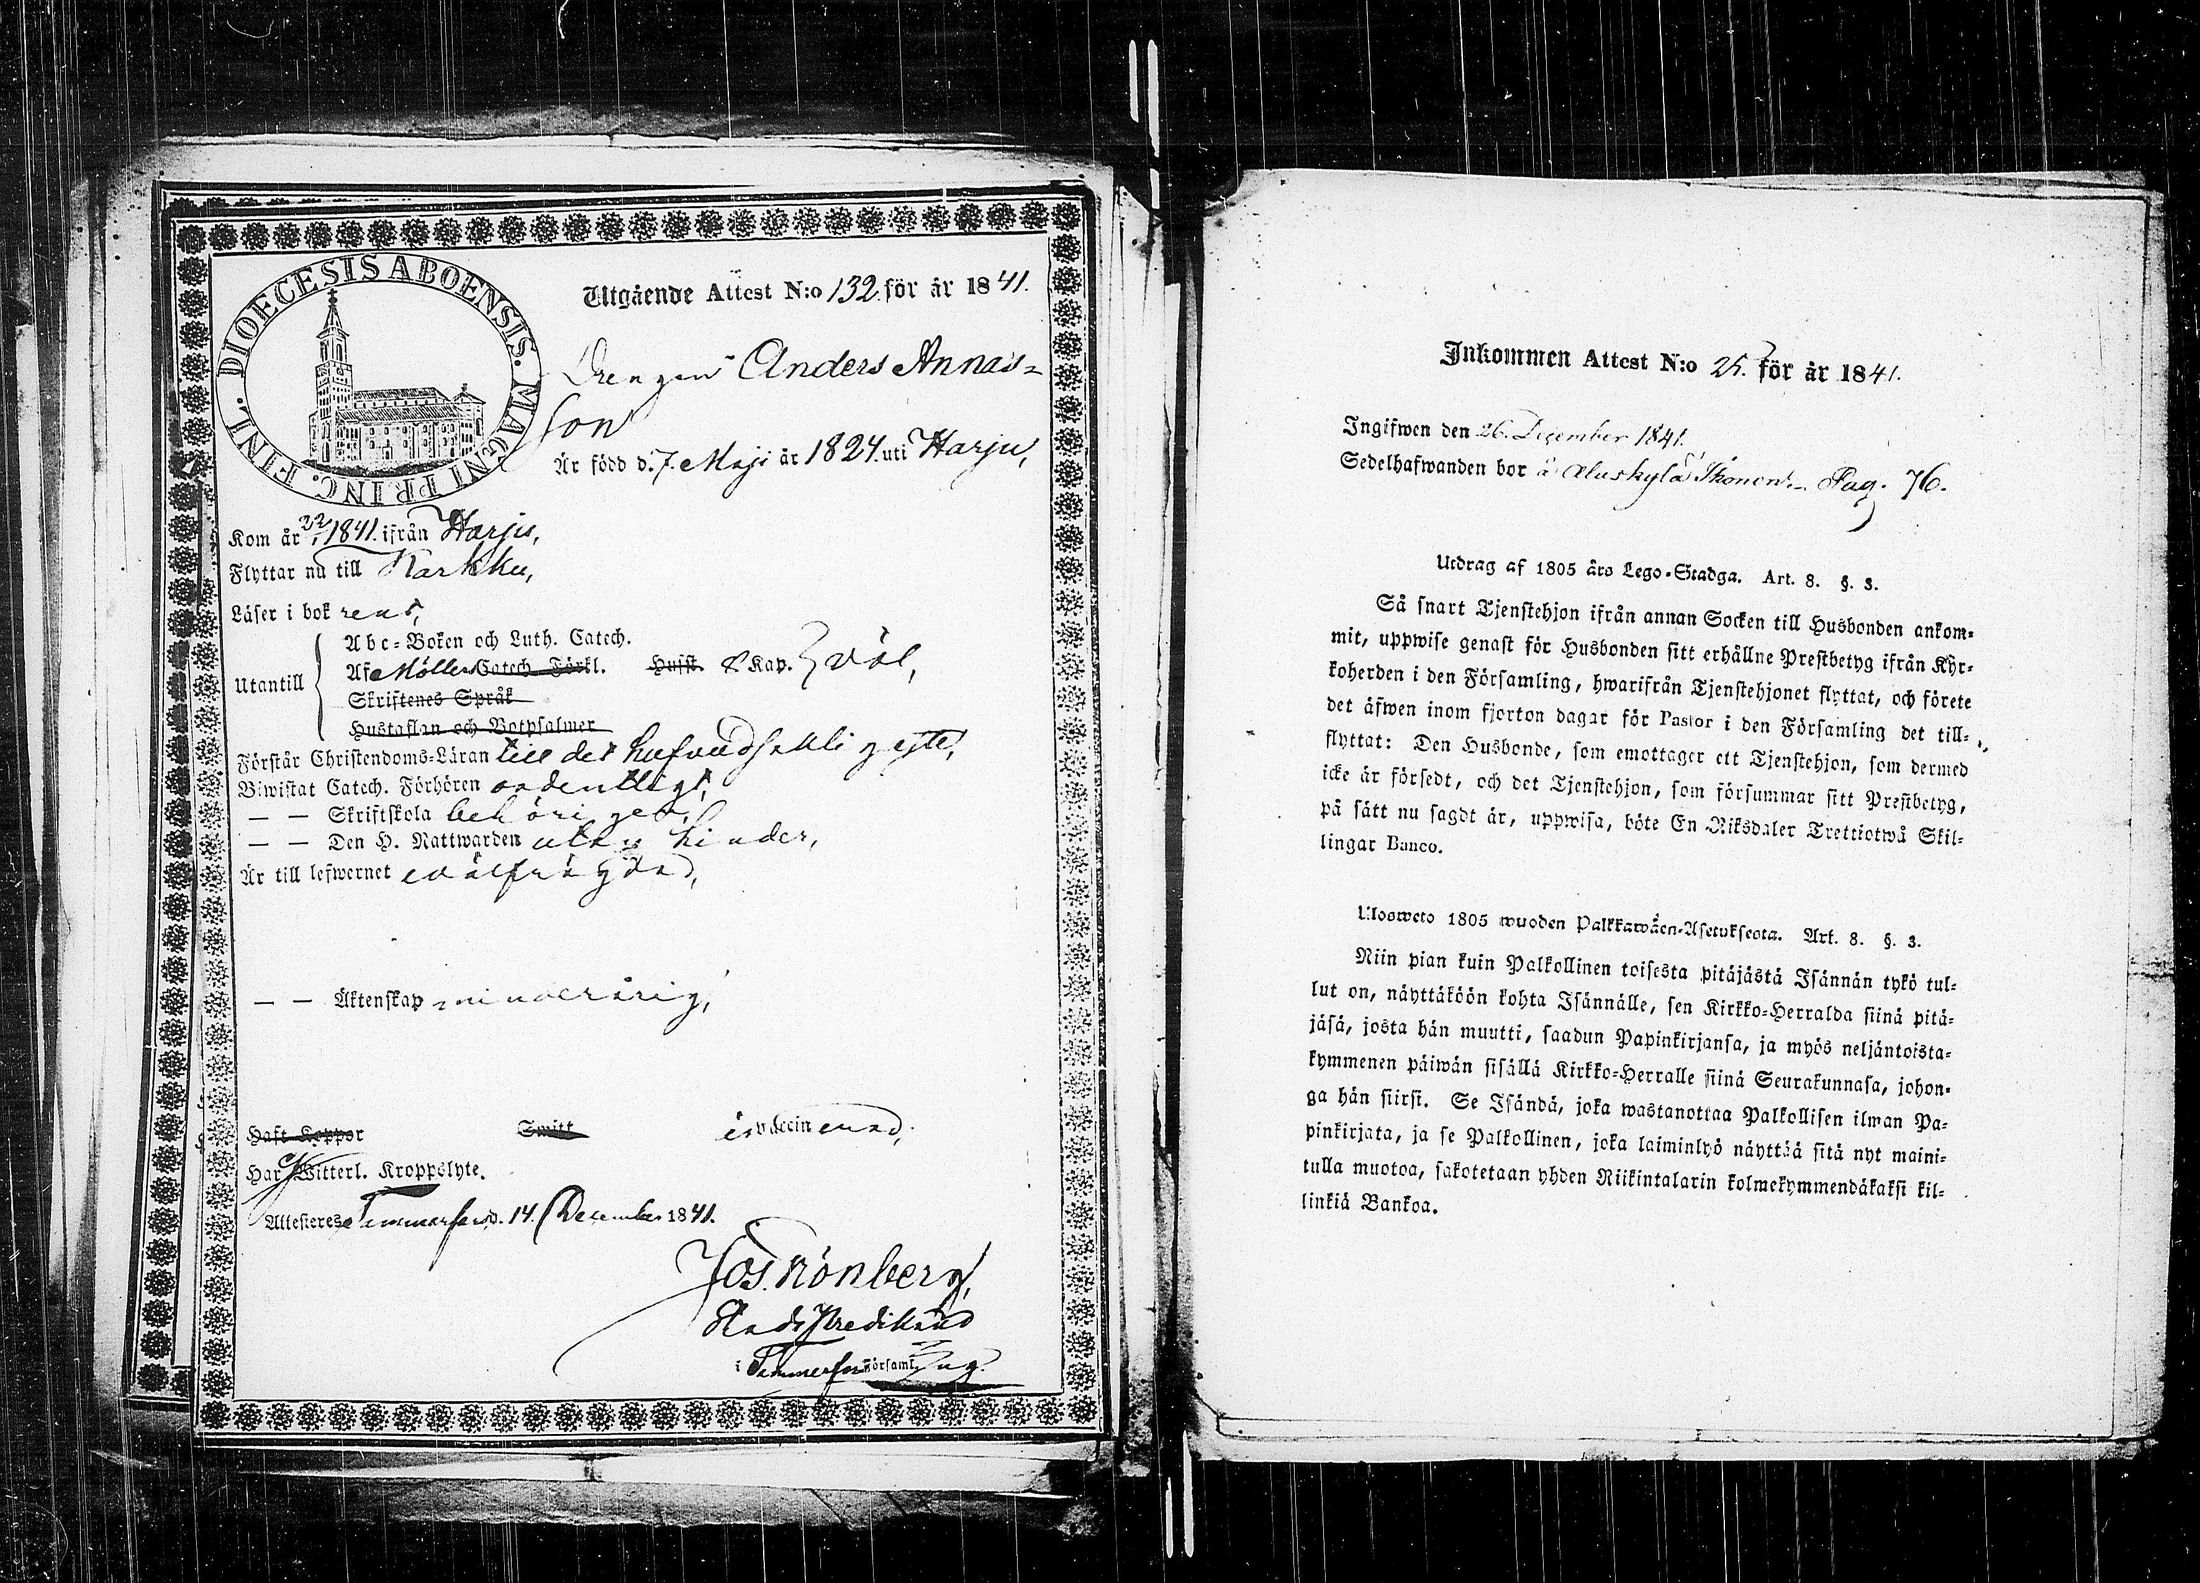 DIOECESIS ABOENSIS. MAGNI PRINC. FINL.
Utgående Attest N:o 132. för år 1841.
Drengen Anders Annas-
son
Är född d. 7. Maji år 1824. uti Harju,
Kom år 1841. ifrån Harju,
Flyttar nu till Karkku,
Läser i bok rent,
Utantill
Abc-Boken och Luth. Catech.
Af Möllers Catech. Förkl. Hufst. 8 Kap. väl,
Skriftenes Språk
Hustaflan och Botpsalmer
Förstår Christendoms-Läran till det hufvudsakligaste,
Biwistat Catech. Förhören ordentligt,
— — Skriftskola behörigen,
— — Den H. Nattwarden utan hinder,
Är till lefwernet wälfrägdad,
— — Äktenskap minderårig,
Haft Koppor Smitt är vaccinerad,
Har Witterl. Kroppslyte.
Attesteres Tammerfors, d. 14. December 1841.
Jos. Grönberg,
Stads Predikant
i Tammerfors Församling.
Inkommen Attest N:o 25. för år 1841.
Ingifwen den 26. December 1841.
Sedelhafwanden bor å Aluskylä Ikonen. Pag. 76.
Utdrag af 1805 års Lego-Stadga. Art. 8. §. 3.
Så snart Tjenstehjon ifrån annan Socken till Husbonden ankom-
mit, uppwise genast för Husbonden sitt erhållne Prestbetyg ifrån Kyr-
koherden i den Församling, hwarifrån Tjenstehjonet flyttat, och förete
det äfwen inom fjorton dagar för Pastor i den Församling det till-
flyttat: Den Husbonde, som emottager ett Tjenstehjon, som dermed
icke är försedt, och det Tjenstehjon, som försummar sitt Prestbetyg,
på sätt nu sagdt är, uppwisa, böte En Riksdaler Trettiotwå Skil-
lingar Banco.
Ulosweto 1805 wuoden Palkkawäen-Asetuksesta. Art. 8. §. 3.
Niin pian kuin Palkollinen toisesta pitäjästä Isännän tykö tul-
lut on, näyttäköön kohta Isännälle, sen Kirkko-Herralda siinä pitä-
jäsä, josta hän muutti, saadun Papinkirjansa, ja myös neljäntoista-
kymmenen päiwän sisällä Kirkko-Herralle siinä Seurakunnasa, johon-
ga hän siirsi. Se Isändä, joka wastanottaa Palkollisen ilman Pa-
pinkirjata, ja se Palkollinen, joka laiminlyö näyttää sitä nyt maini-
tulla muotoa, sakotetaan yhden Riikintalarin kolmekymmendäkaksi kil-
linkiä Bankoa.